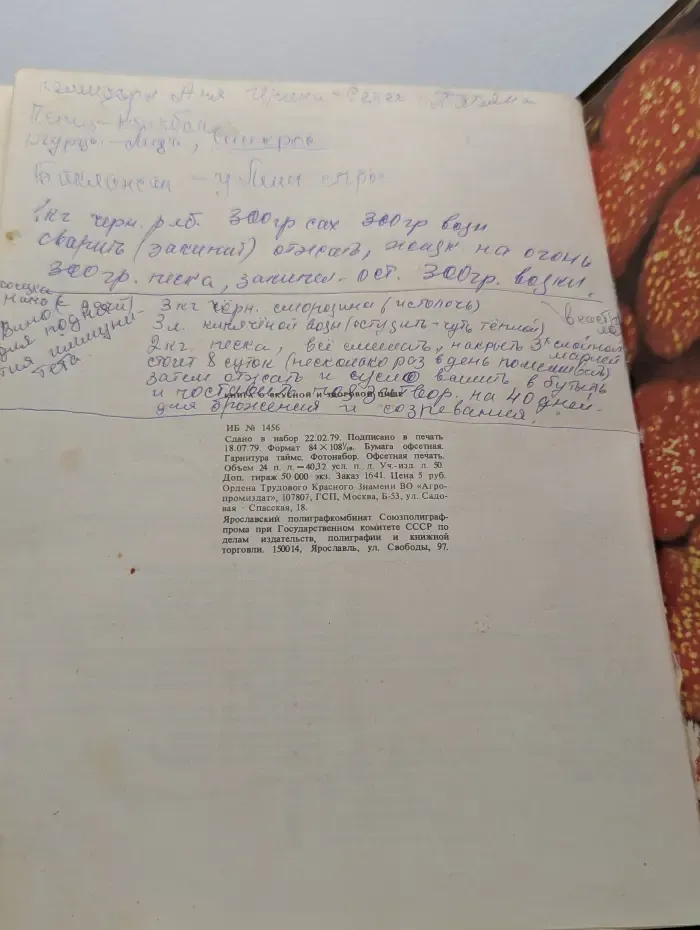 помидоры Аня
огурцы - Лидч,
Баклажан - у Лины
1 кг черн. ряб. 300гр сах 300гр воды
сварить (закипит) отжать, жмых на огонь
300 гр. песка, закипел - ост. 300гр. водки.
Вино (
для поднятия иммунитета
3 кг чёрн. смородина (истолочь)
3 л. кипячёной воды (остудить - чуть тёплой)
2 кг. песка, всё смешать, накрыть 3х слойной марлей
стоит 8 суток (несколько раз в день помешивать)
затем отжать и сусло вылить в бутыль
и поставить под затвор. на 40 дней.
для брожения и созревания.
книга о вкусной и здоровой пище
ИБ № 1456
Сдано в набор 22.02.79. Подписано в печать
18.07.79. Формат 84 × 108 1/16. Бумага офсетная.
Гарнитура таймс. Фотонабор. Офсетная печать.
Объем 24 п. л. — 40,32 усл. п. л. Уч.-изд. л. 50.
Доп. тираж 50 000 экз. Заказ 1641. Цена 5 руб.
Ордена Трудового Красного Знамени ВО «Агро-
промиздат», 107807, ГСП, Москва, Б-53, ул. Садо-
вая - Спасская, 18.
Ярославский полиграфкомбинат Союзполиграф-
прома при Государственном комитете СССР по
делам издательств, полиграфии и книжной
торговли. 150014, Ярославль, ул. Свободы, 97.